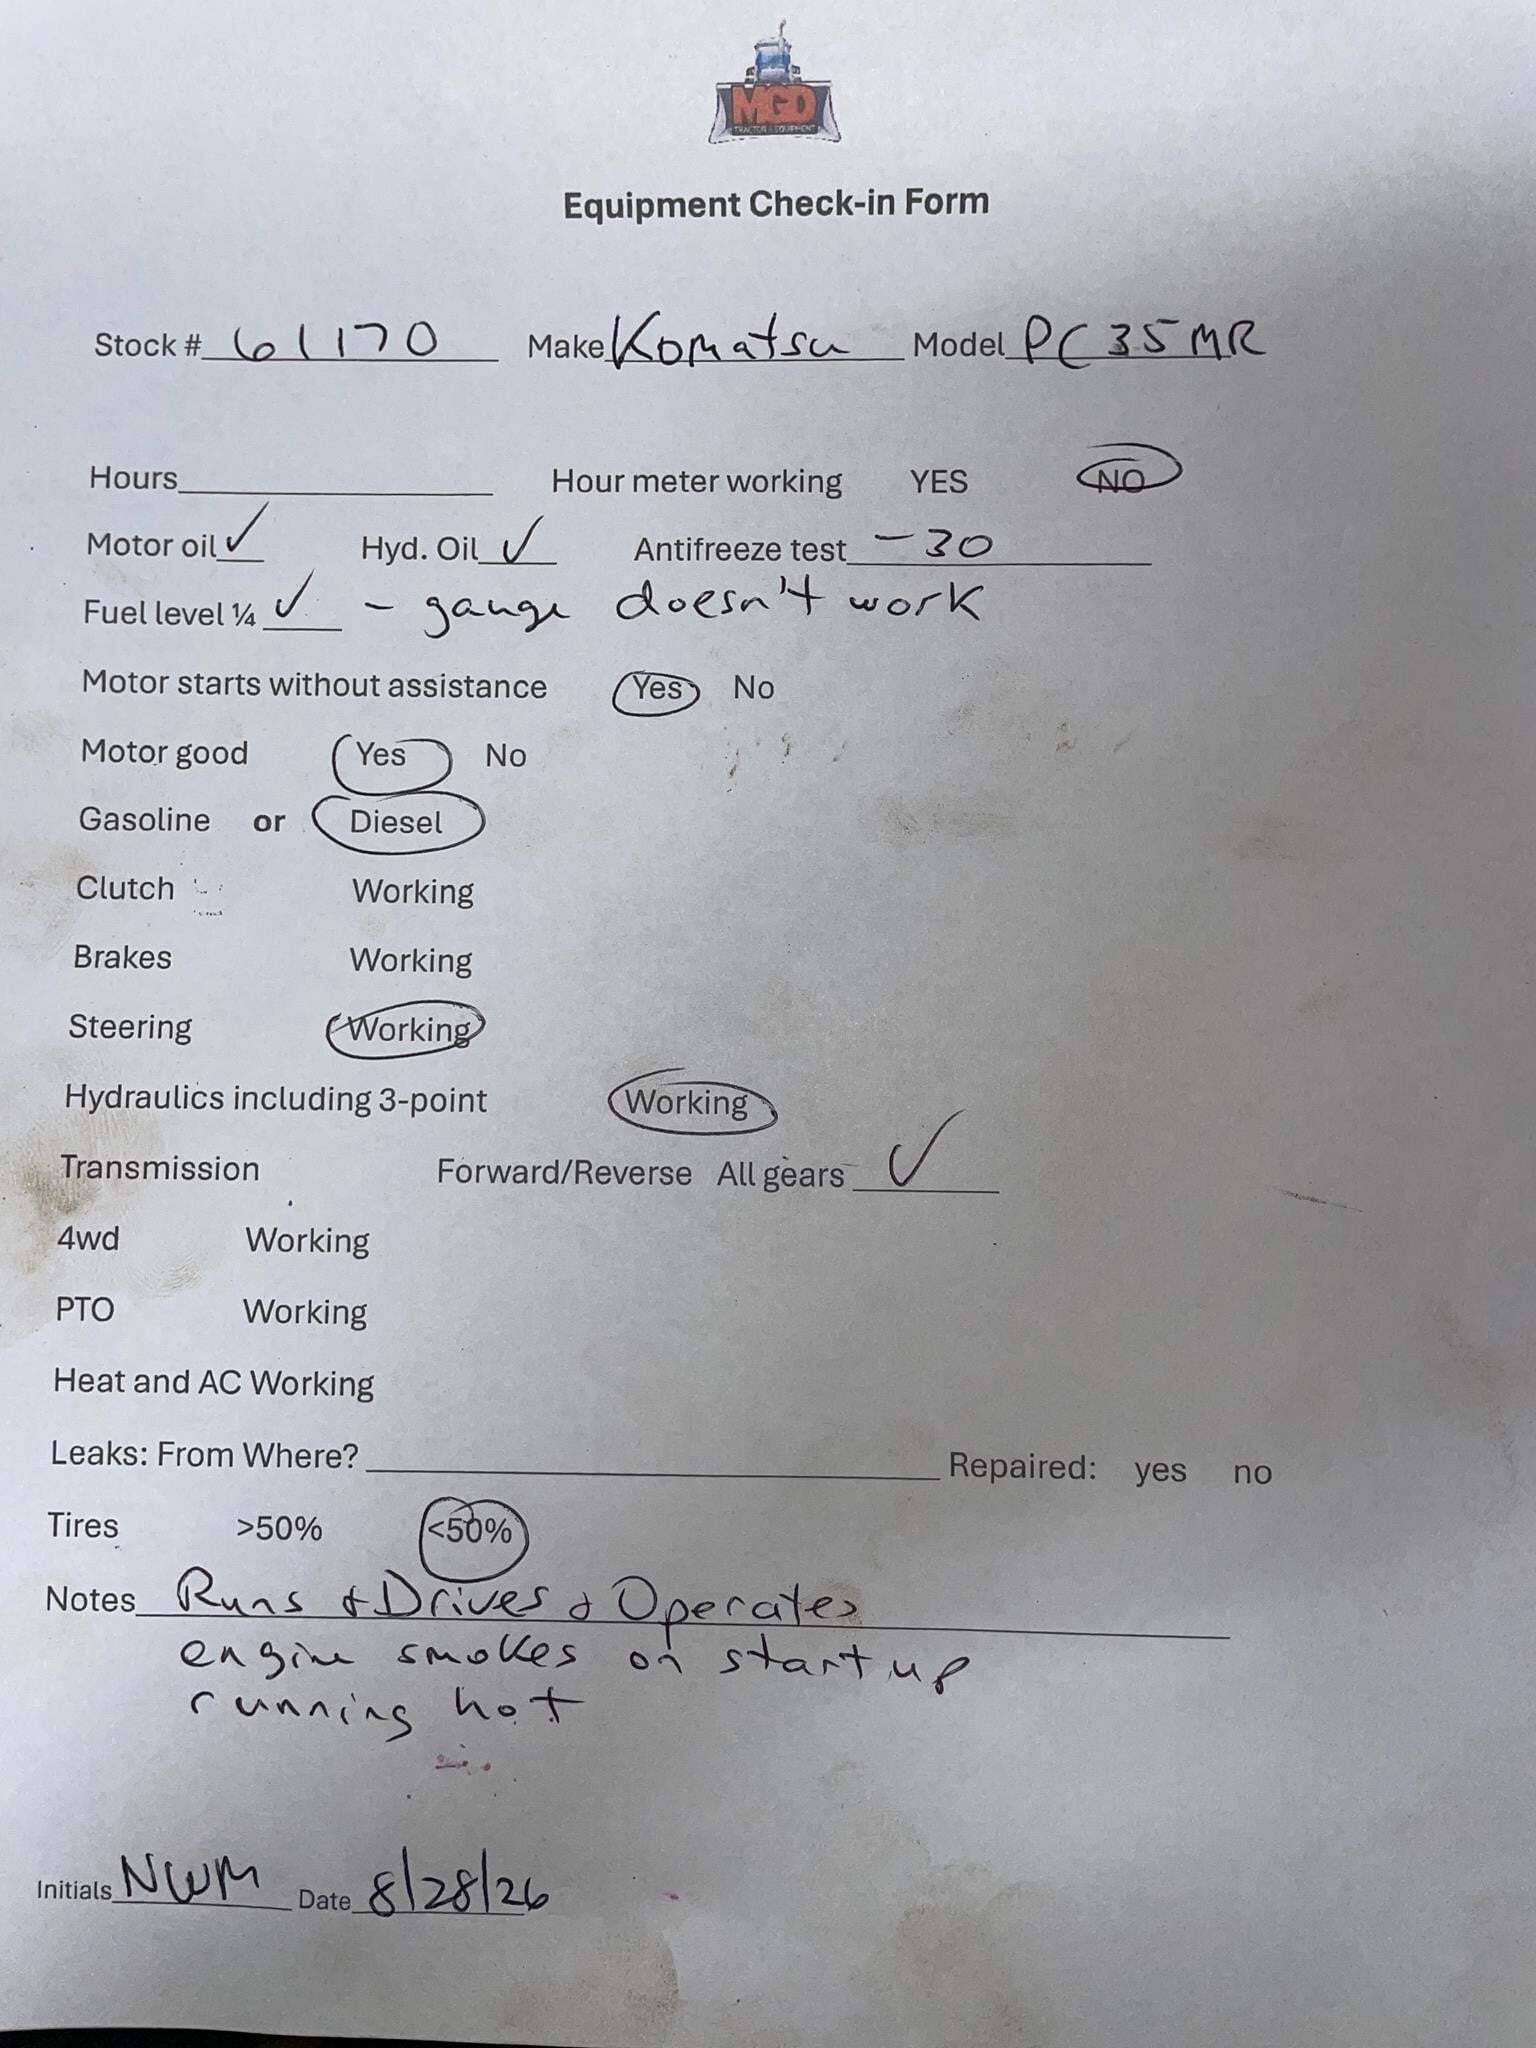 MGD
TRACTOR & EQUIPMENT
Equipment Check-in Form
Stock # 61170 Make Komatsu Model PC35MR
Hours Hour meter working YES NO
Motor oil ✓ Hyd. Oil ✓ Antifreeze test -30
Fuel level ¼ ✓ - gauge doesn't work
Motor starts without assistance Yes No
Motor good Yes No
Gasoline or Diesel
Clutch Working
Brakes Working
Steering Working
Hydraulics including 3-point Working
Transmission Forward/Reverse All gears ✓
4wd Working
PTO Working
Heat and AC Working
Leaks: From Where? Repaired: yes no
Tires >50% <50%
Notes Runs & Drives & Operates
engine smokes on start up
running hot
Initials NWM Date 8/28/26